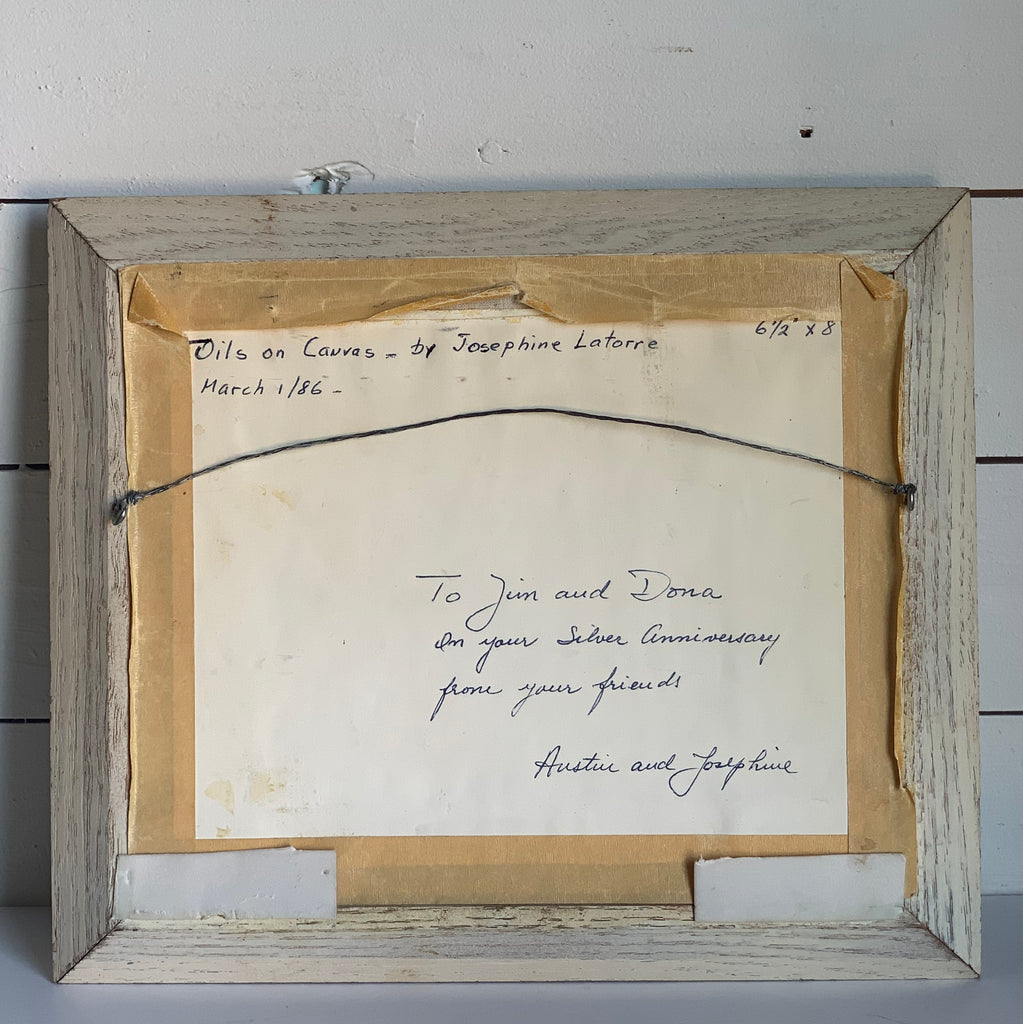 Oils on Canvas - by Josephine Latorre
6 1/2" x 8
March 1/86 -
To Jim and Dona
On your Silver Anniversary
from your friends
Austin and Josephine